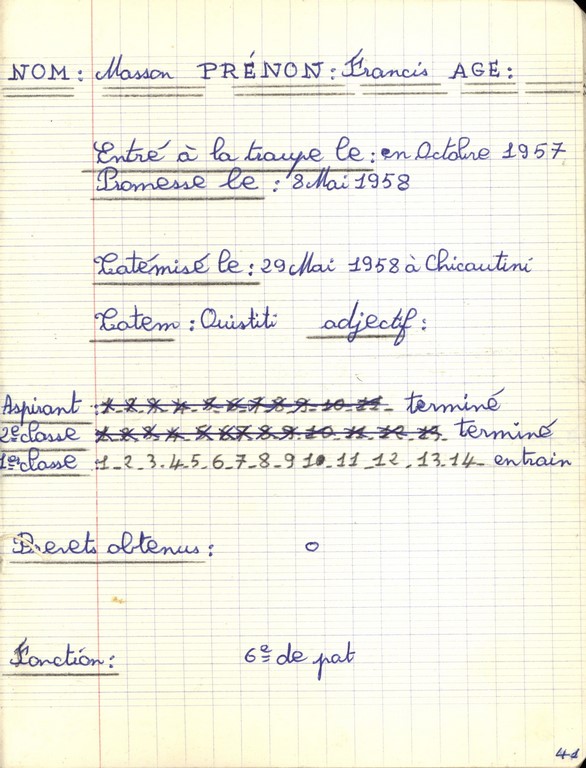 NOM : Masson PRÉNOM : Francis AGE :
Entré à la troupe le : en Octobre 1957
Promesse le : 8 Mai 1958
Totémisé le : 29 Mai 1958 à Chicoutini
Totem : Ouistiti adjectif :
Aspirant : 1_2_3_4_5_6_7_8_9_10_11_ terminé
2e classe 1_2_3_4_5_6_7_8_9_10_11_12_13_ terminé
1ere classe : 1_2_3_4_5_6_7_8_9_10_11_12_13_14_ entrain
Brevets obtenus : 0
Fonction : 6e de pat
41